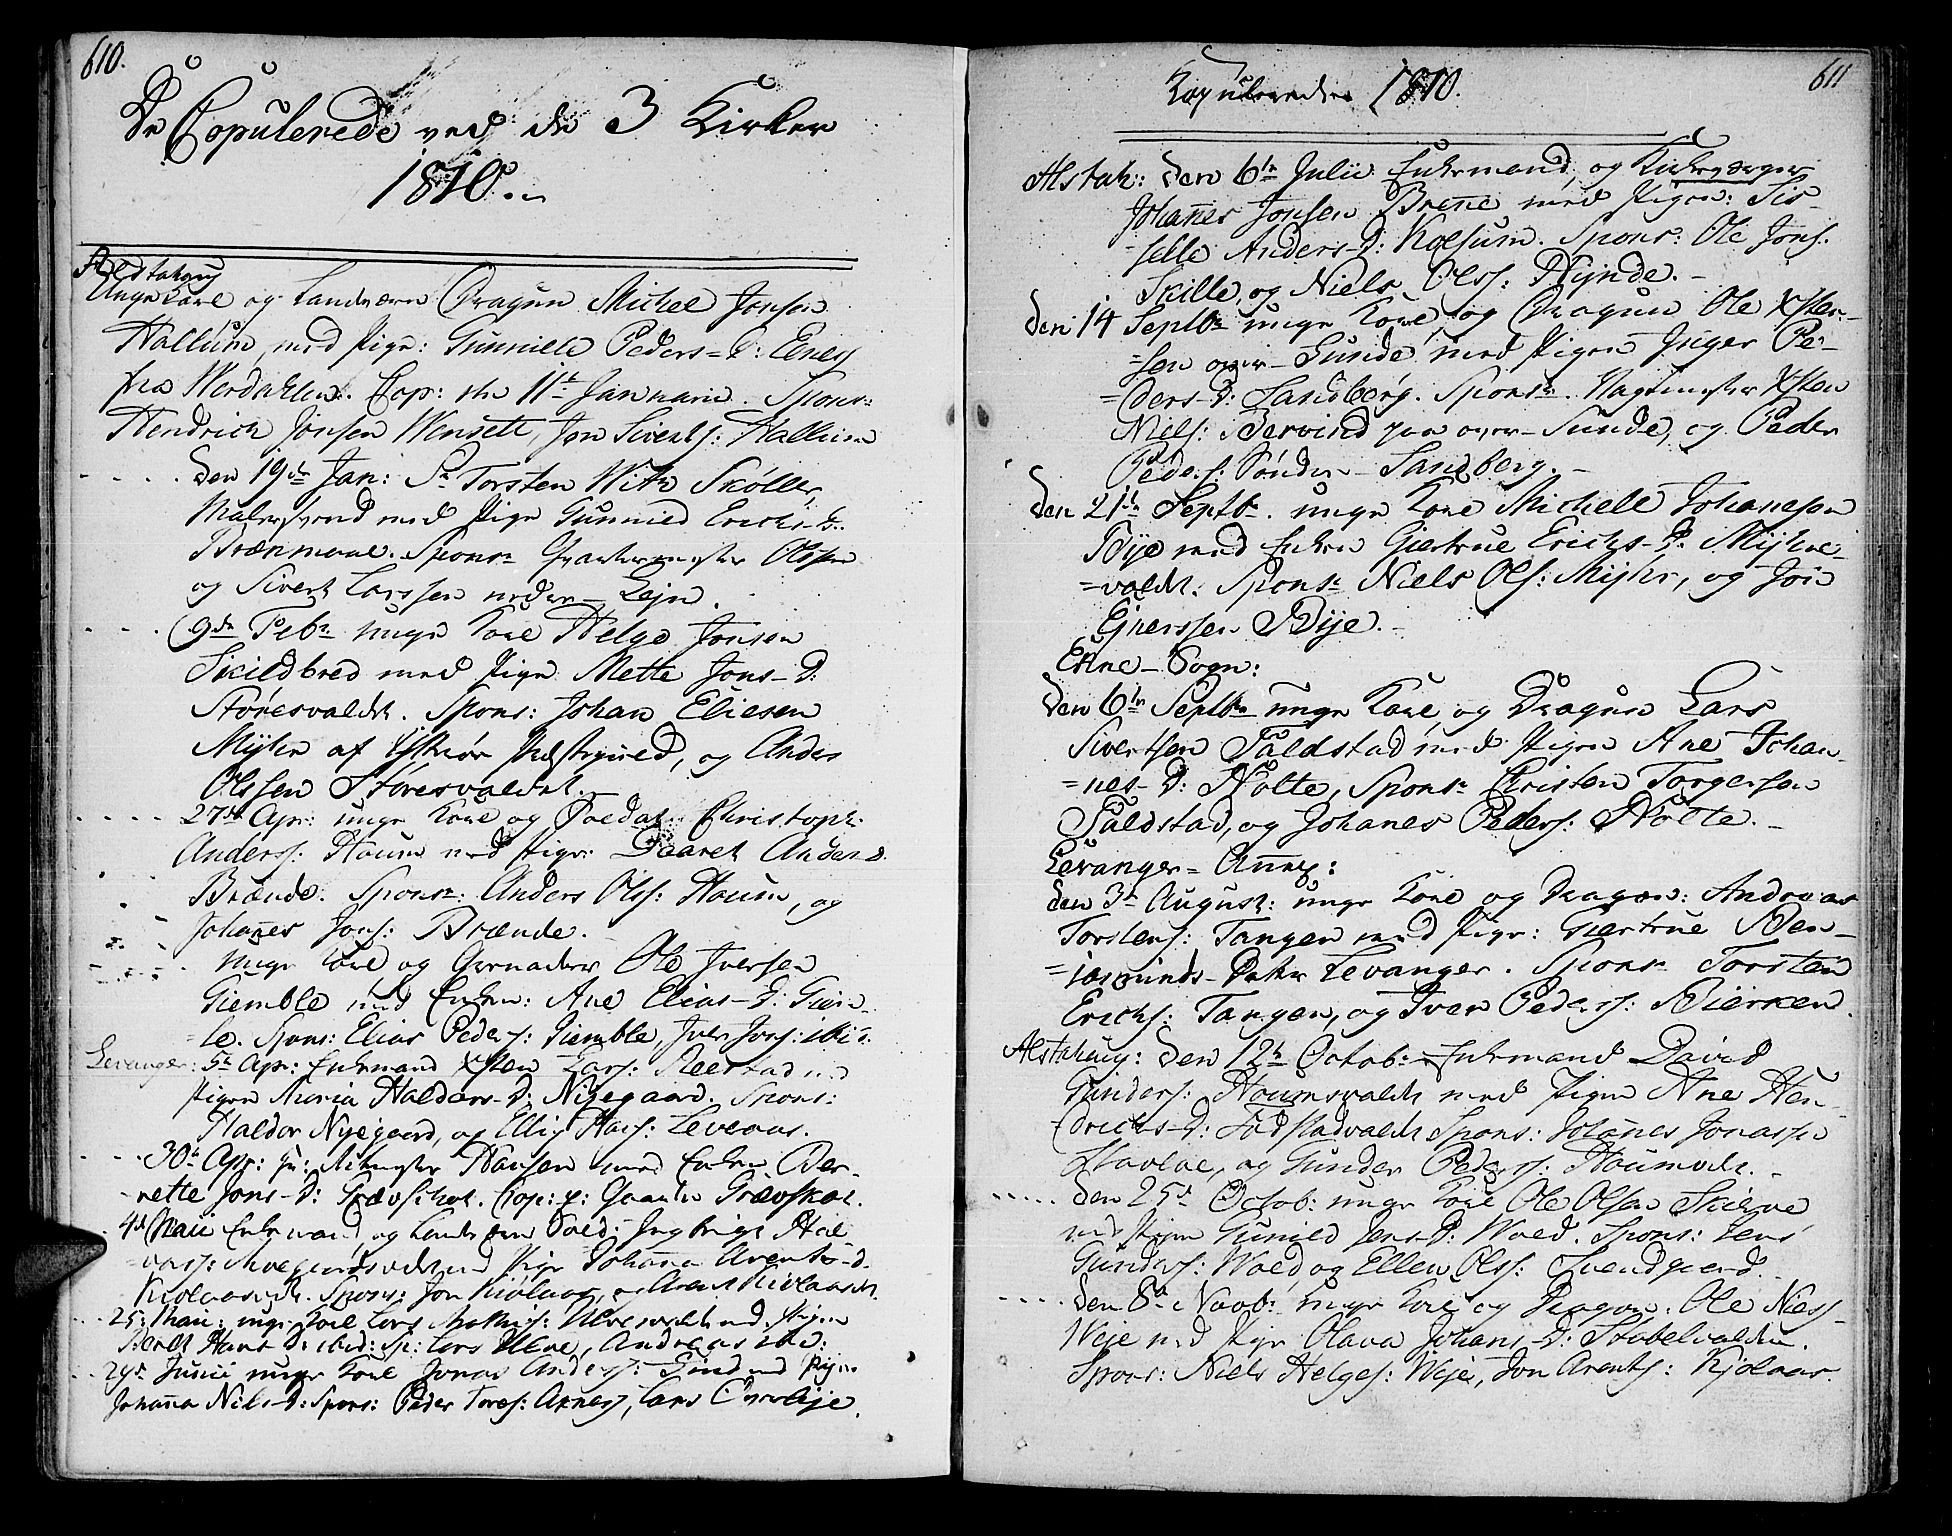 610.
De Copulerede ved de 3 Kirker
1810.
Alstahoug
Unge Karl og Landværn Dragun Michel Jonsen
Hallum med Pige: Gunnille Peders-D: Ekness
fra Werdahlen. Cop: den 11te Januarii. Spons:
Hendrich Jonsen Wensett, Jon Siverts: Hallum
den 19de Jan: Sr Torsten With Skøller,
med Pige Gunnild Erichs-D:
Brænmoue. Spons: Qvarteermester Olsen
og Sivert Larssen neder-Lejn.
9de Febr unge Karl Helge Jonsen
Skildbred med Pige Mette Jons-D:
Størresvaldet. Spons: Johan Eliesen
Myhr af Ytterøe Præstegield, og Anders
Olssen Støresvaldet.
27de Apr: unge Karl og Soldat Christoph:
Anderss: Houm med Pige: Daaret Anders D.
Brænde. Spons: Anders Olss: Houm, og
Johanes Jons: Brænde.
unge Karl og Grenader Ole Iversen
Giemble med Enken: Ane Elias-D: Giem-
le. Spons: Elias Peders: Giemble, Iver Jons: ibid.
Levanger: 5te Apr: Enkemand Xsten Lars: Reestad med
Pigen Maria Haldors-D: Nijegaard. Spons:
Haldor Nyegaard, og Ellig Hans: Leveaas.
30te Apr: Hansen med Enken Ber-
rette Jons-D: Grævskot. Cop: Grævskot.
4de Maii Enkemand, og Landværn Sold: Ingbrigt Hal
vors: med Pige Johanna Arents-D.
Spons: Jon Kiolaas, og Arent
25: Maii: unge Karl Lars Mathis: Ulvesvaldet med Pigen
Beret Hans D: ibid: Sp: Lars Ulve, Andreas ibid:
29de Junii unge Karl Jonas Anders: Sund med Pigen
Johanna Nils-D: Spons: Peder Tores: Aknes, Lars
611
Kopulerede 1810.
Alstah: den 6te Julii Enkemand, og Kirkeværger
Johanes Jonsen Brene med Pigen: Sis-
selle Anders-D: Kolsum. Spons: Ole Jons.
Skille, og Niels Olss: Nynde.
den 14 Septbr unge Karl, og Dragun Ole Xsten-
sen over-Sunde, med Pigen Inger Pe-
ders-D: Sandberg. Sponsr. Vagtmester Xsten
Niels: Bervind paa over-Sunde, og Peder
Peders: Søndre-Sandberg.
den 21de Septbr. unge Karl Michell Johanesen
Bye med Enken Giertrue Erichs-D: Myhre-
valdet. Sponsr Niels Ols: Myhr, og Jon
Ejnerssen Bije.
Ekne-Sogn:
den 6te Septbr unge Karl, og Dragun Lars
Sivertsen Faldstad med Pigen Ane Johan-
nes-D: Nolte, Sponsr Christen Torgersen
Faldstad, og Johanes Peders: Nolte.
Levanger-Annex:
den 3de August: unge Karl og Dragon: Andreas
Torstens: Tangen med Pige: Giertrue Ben-
iaminds-Datter Levanger. Sponsr Torsten
Erichs: Tangen, og Iver Peders: Bierken.
Alstahoug: den 12te Octob: Enkemand David
Gunders: Houmsvaldet med Pigen Ane Hen-
drichs-D: Fostadvaldet Spons: Johanes Jonassen
og Gunder Peders: Houmvald.
den 25de Octob: unge Karl Ole Olsen Skierve
med Pigen Gunild Jens-D: Woed. Spons: Jens
Gunders: Woed og Ellen Olss: Svendgaard.
den 8de Novb: unge Karl og Dragon: Ole Niels
Weje med Pige Olava Johans-D: Stobelvalden.
Spons: Niels Helges: Weje, Jon Arents: Kjolaas.